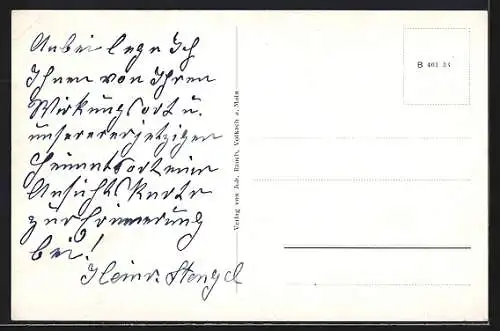 Anbei lege Ich
Ihnen von Ihren
Wirkungsort u.
unsererer jetzigen
Heimatsort eine
Ansichtskarte
zur Erinnerung
bei!
Heinr. Stengel
Verlag von Joh. Rausch, Volkach a. Main
B 401 34